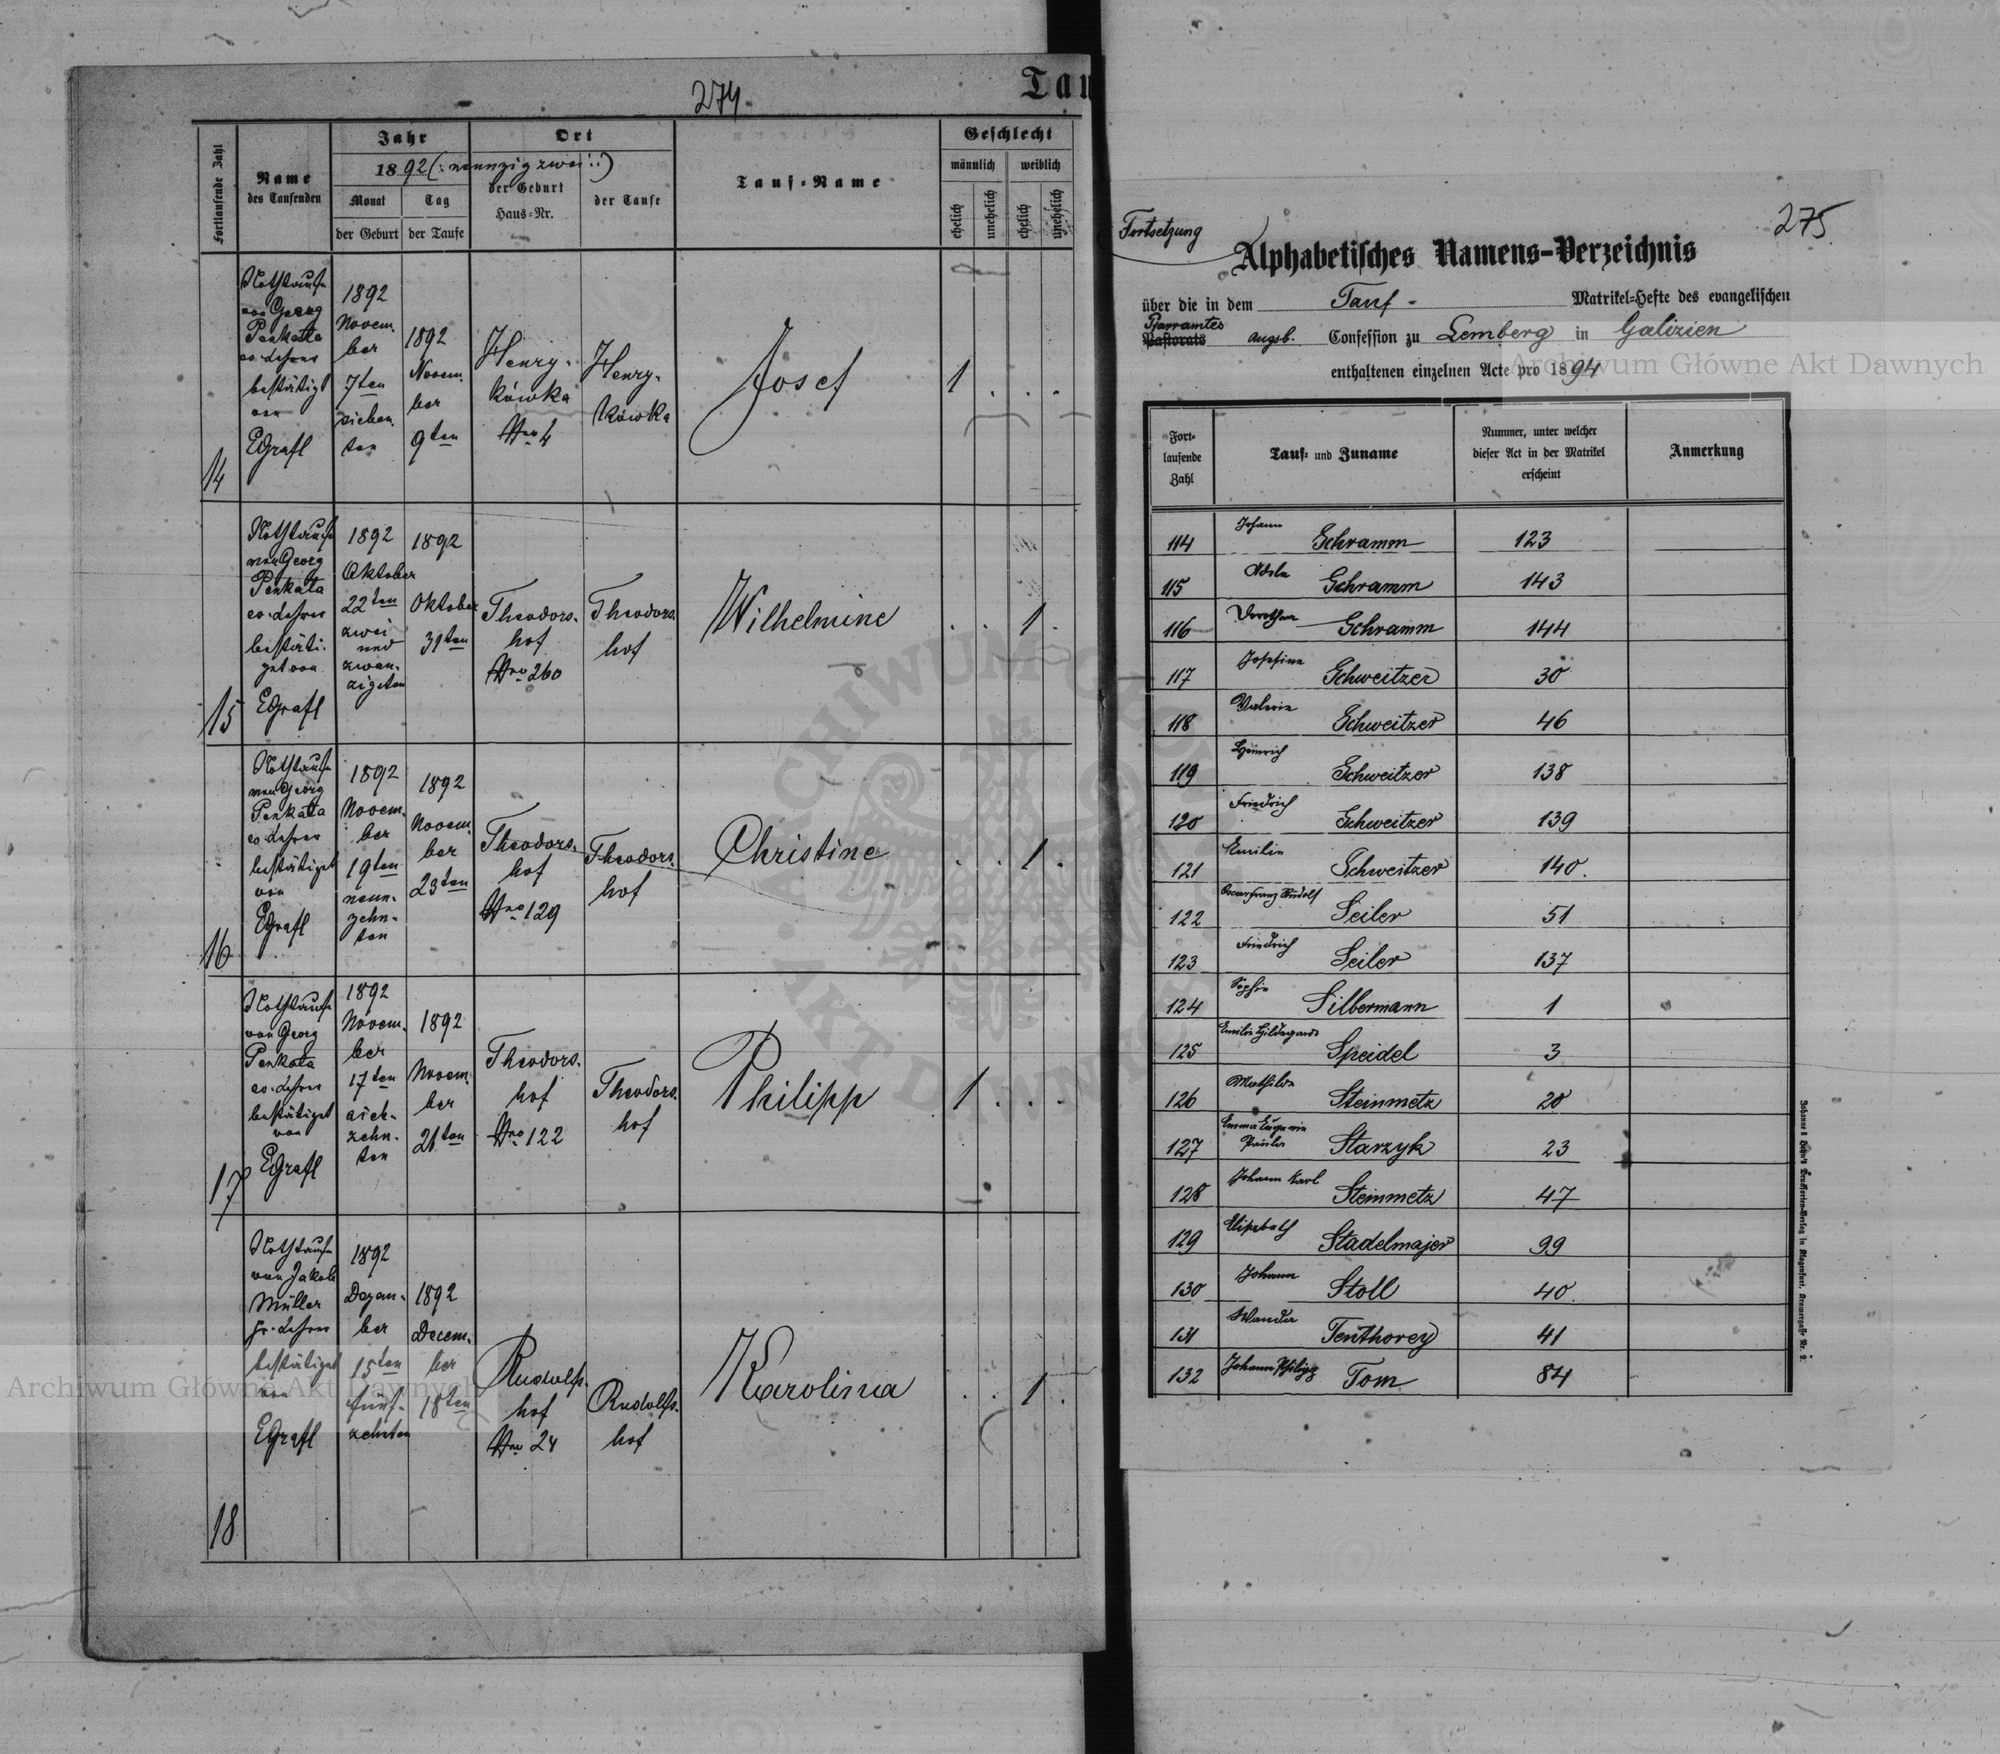 274.
Tau
Fortlaufende Zahl
Name
des Taufenden
Jahr
1892 (: neunzig zwei :)
Monat
der Geburt
Tag
der Taufe
Ort
der Geburt
Haus-Nr.
der Taufe
Tauf-Name
Geschlecht
männlich
weiblich
ehelich
unehelich
ehelich
unehelich
14
Nothtaufe
von Georg
Penkata
ev. Lehrer
bestätigt
von
EGrafl
1892
Novem-
ber
7ten
sieben-
ten
1892
Novem-
ber
9ten
Henry-
kówka
Nro 4
Henry-
kówka
Josef
1 . . .
15
Nothtaufe
von Georg
Penkata
ev. Lehrer
bestäti-
get von
EGrafl
1892
Oktober
22ten
zwei
und
zwan-
zigsten
1892
Oktober
31ten
Theodors-
hof
Nro 260
Theodors-
hof
Wilhelmine
. . 1 .
16
Nothtaufe
von Georg
Penkata
ev. Lehrer
bestätiget
von
EGrafl
1892
Novem-
ber
19ten
neun-
zehn-
ten
1892
Novem-
ber
23ten
Theodors-
hof
Nro 129
Theodors-
hof
Christine
. . 1 .
17
Nothtaufe
von Georg
Penkata
ev. Lehrer
bestätiget
von
EGrafl
1892
Novem-
ber
17ten
zehn-
ten
1892
Novem-
ber
21ten
Theodors-
hof
Nro 122
Theodors-
hof
Philipp
1 . . .
18
Nothtaufe
von Jakob
Müller
Lehrer
bestätiget
von
EGrafl
1892
Dezem-
ber
15ten
fünf-
zehnten
1892
Decem-
ber
18ten
Rudolfs-
hof
Nro 24
Rudolfs-
hof
Karolina
. . 1 .
275.
Fortsetzung
Alphabetisches Namens-Verzeichnis
über die in dem Tauf- Matrikel-Hefte des evangelischen
Pfarramtes
Pastorats augsb. Confession zu Lemberg in Galizien
enthaltenen einzelnen Acte pro 1894
Fort-
laufende
Zahl
Tauf- und Zuname
Nummer, unter welcher
dieser Act in der Matrikel
erscheint
Anmerkung
114 Johann Schramm 123
115 Adele Schramm 143
116 Dorothea Schramm 144
117 Josefine Schweitzer 30
118 Valerie Schweitzer 46
119 Heinrich Schweitzer 138
120 Friedrich Schweitzer 139
121 Emilie Schweitzer 140.
122 Oscar Franz Rudolf Seiler 51
123 Friedrich Seiler 137
124 Sophie Silbermann 1
125 Emilie Hildegarde Speidel 3
126 Mathilde Steinmetz 20
127 Emma Eugenie Paula Starzyk 23
128 Johann Karl Steinmetz 47
129 Elisabeth Stadelmajer 99
130 Johann Stoll 40.
131 Wanda Tenthorey 41
132 Johann Philipp Tom 84
Johannes Heyn's Druckerei-Verlag in Klagenfurt, Kramergasse Nr. 9.
Archiwum Główne Akt Dawnych
Archiwum Główne Akt Dawnych
ARCHIWUM GŁÓWNE · AKT DAWNYCH ·